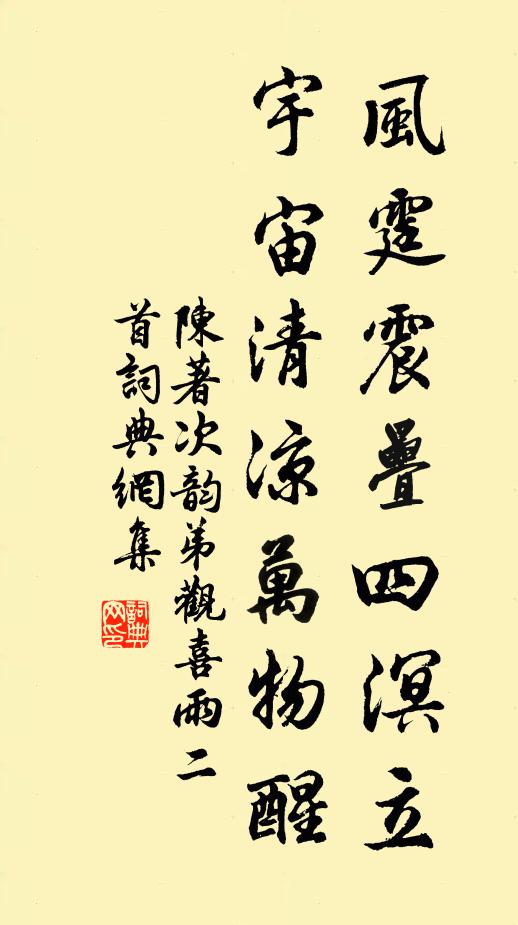 風霆震疊四溟立
宇宙清涼萬物醒
陳著次韵弟觀喜雨二
首詞典網集
詞典網印